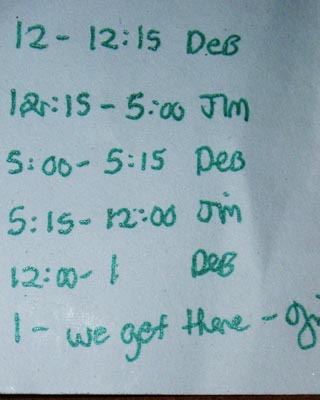 12 - 12:15 DeB
12:15 - 5:00 Jim
5:00 - 5:15 DeB
5:15 - 12:00 Jim
12:00 - 1 DeB
1 - we get there -